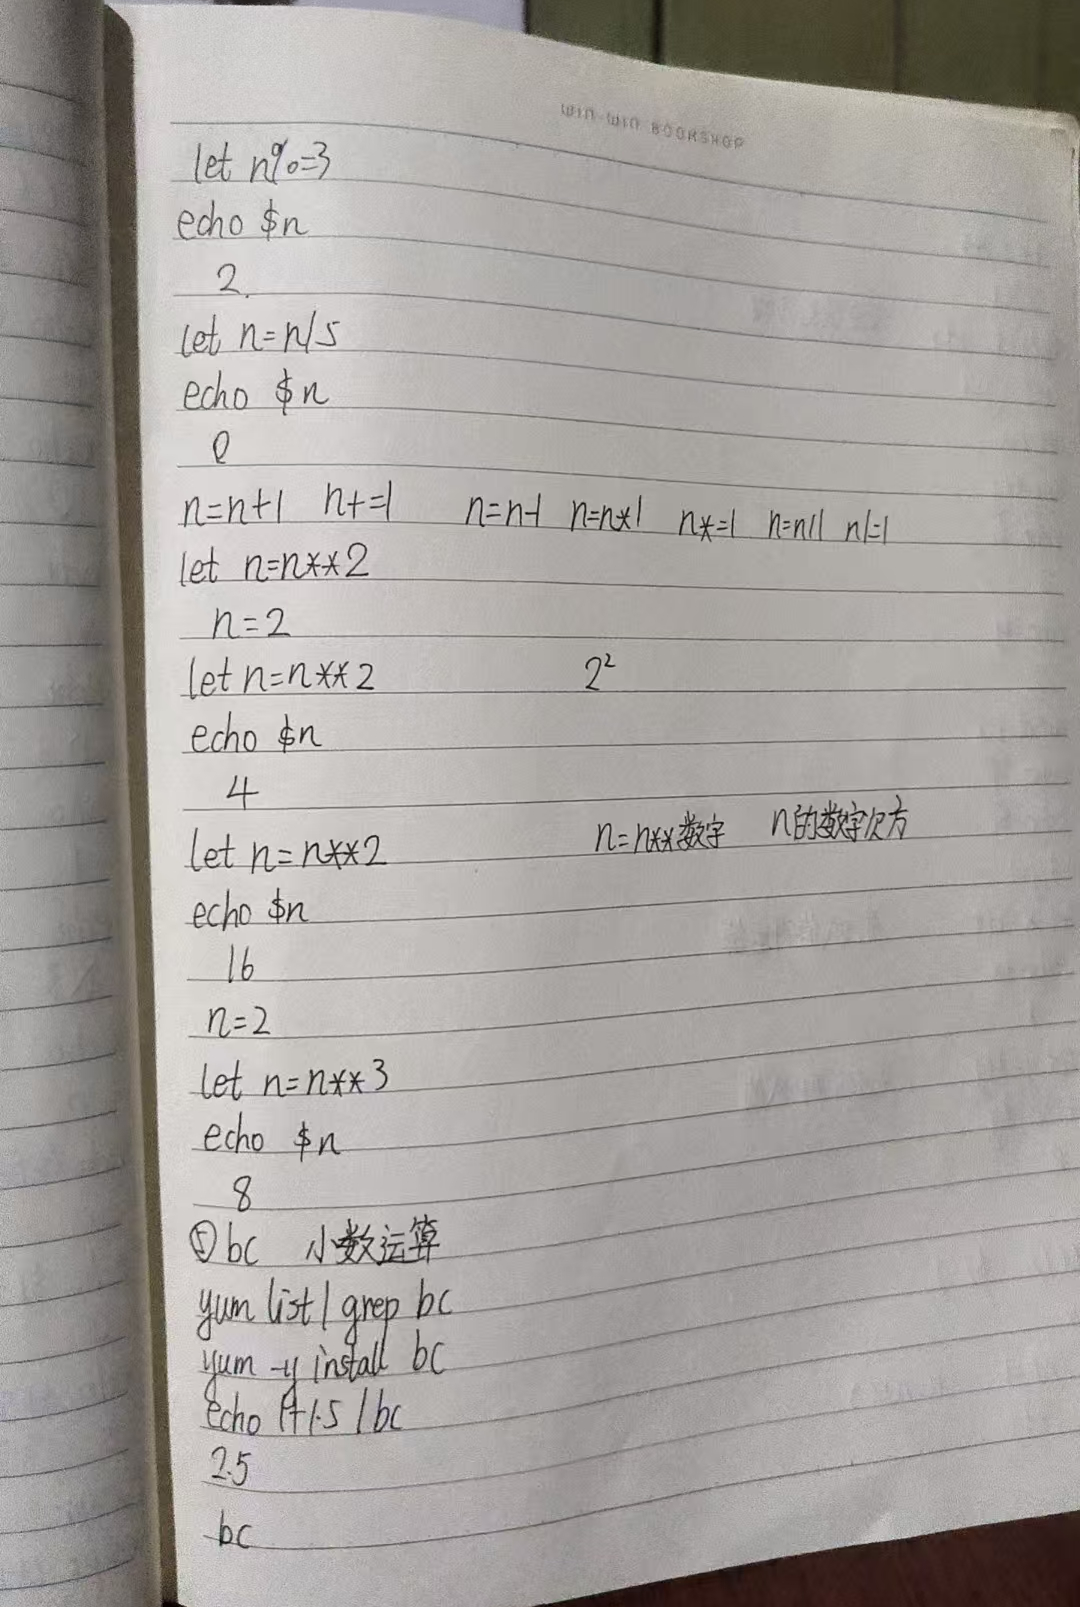 WIN WIN BOOKSHOP
let n%=3
echo $n
2
let n=n/5
echo $n
0
n=n+1 n+=1 n=n-1 n=n*1 n*=1 n=n/1 n/=1
let n=n**2
n=2
let n=n**2 2²
echo $n
4
let n=n**2 n=n**数字 n的数字次方
echo $n
16
n=2
let n=n**3
echo $n
8
bc 小数运算
yum list | grep bc
yum -y install bc
echo 1+1.5 | bc
2.5
bc